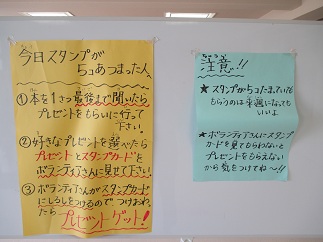 今日スタンプが
5コあつまった人
①本を1さつ最後まで聞いたら
プレゼントをもらいに行って
下さい。
②好きなプレゼントを選べたら
プレゼントとスタンプカードを
ボランティアさんに見せて下さい。
③ボランティアさんがスタンプカード
にしるしをつけるので、つけおわっ
たら プレゼントゲット!
注意!!
★スタンプが5コたまっていても
もらうのは来週になっても
いいよ
★ボランティアさんにスタンプ
カードを見てもらわないと
プレゼントをもらえない
から気をつけてね〜!!